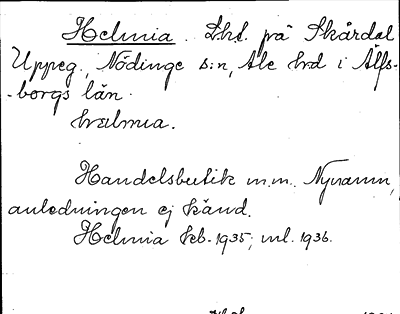 Helmia. Lht. på Skårdal
Uppeg., Nödinge s:n, Ale hrd i Älfs-
-borgs län.
hælmia.
Handelsbutik m.m. Nynamn,
anledningen ej känd.
Helmia Feb. 1935; ml. 1936.